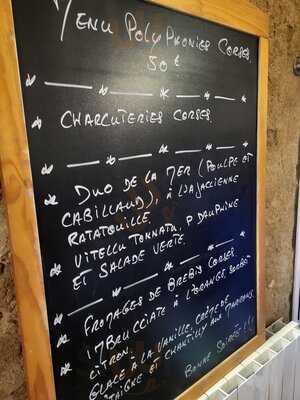 MENU POLYPHONIES CORSES.
50 €
CHARCUTERIES CORSES.
DUO DE LA MER (POULPE ET
CABILLAUD), À L'AJACCIENNE
RATATOUILLE.
VITELLU TONNATU, P DAUPHINE
ET SALADE VERTE.
FROMAGES DE BREBIS CORSES.
IMBRUCCIATE À L'ORANGE, SORBET
CITRON.
GLACE À LA VANILLE, CRÈME DE
CHATAIGNE ET CHANTILLY AUX
BONNE SOIRÉE!!